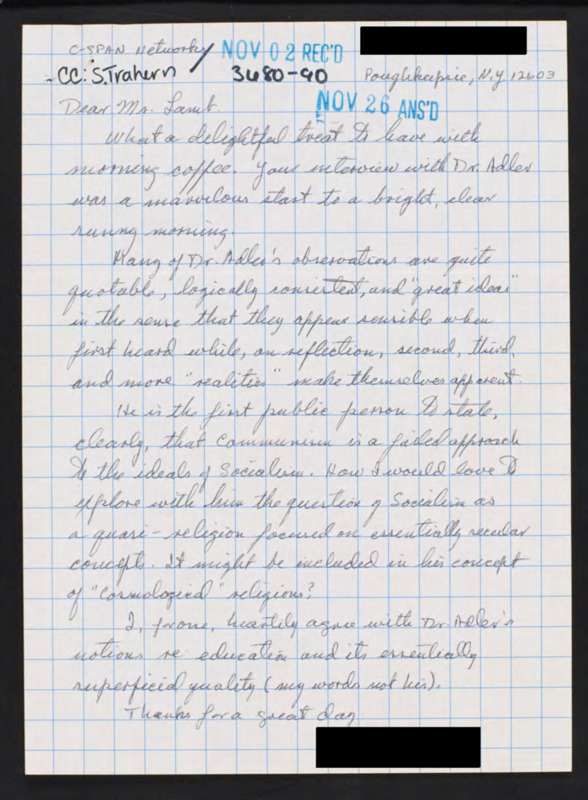 C-SPAN Networks
NOV 02 REC'D
CC: S. Trahern
3680-90
Poughkeepsie, N.Y. 12603
NOV 26 ANS'D
Dear Mr. Lamb
What a delightful treat to have with
morning coffee. Your interview with Dr. Adler
was a marvelous start to a bright, clear
sunny morning.
Many of Dr. Adler's observations are quite
quotable, logically consistent, and "great ideas"
in the sense that they appear sensible when
first heard while, on reflection, second, third,
and more "realities" make themselves apparent.
He is the first public person to state,
clearly, that Communism is a failed approach
to the ideals of Socialism. How I would love to
explore with him the question of Socialism as
a quasi-religion focused on essentially secular
concepts. It might be included in his concept
of "Cosmological" religions?
I, for one, heartily agree with Dr. Adler's
notions re: education and its essentially
superficial quality (my words not his).
Thanks for a great day